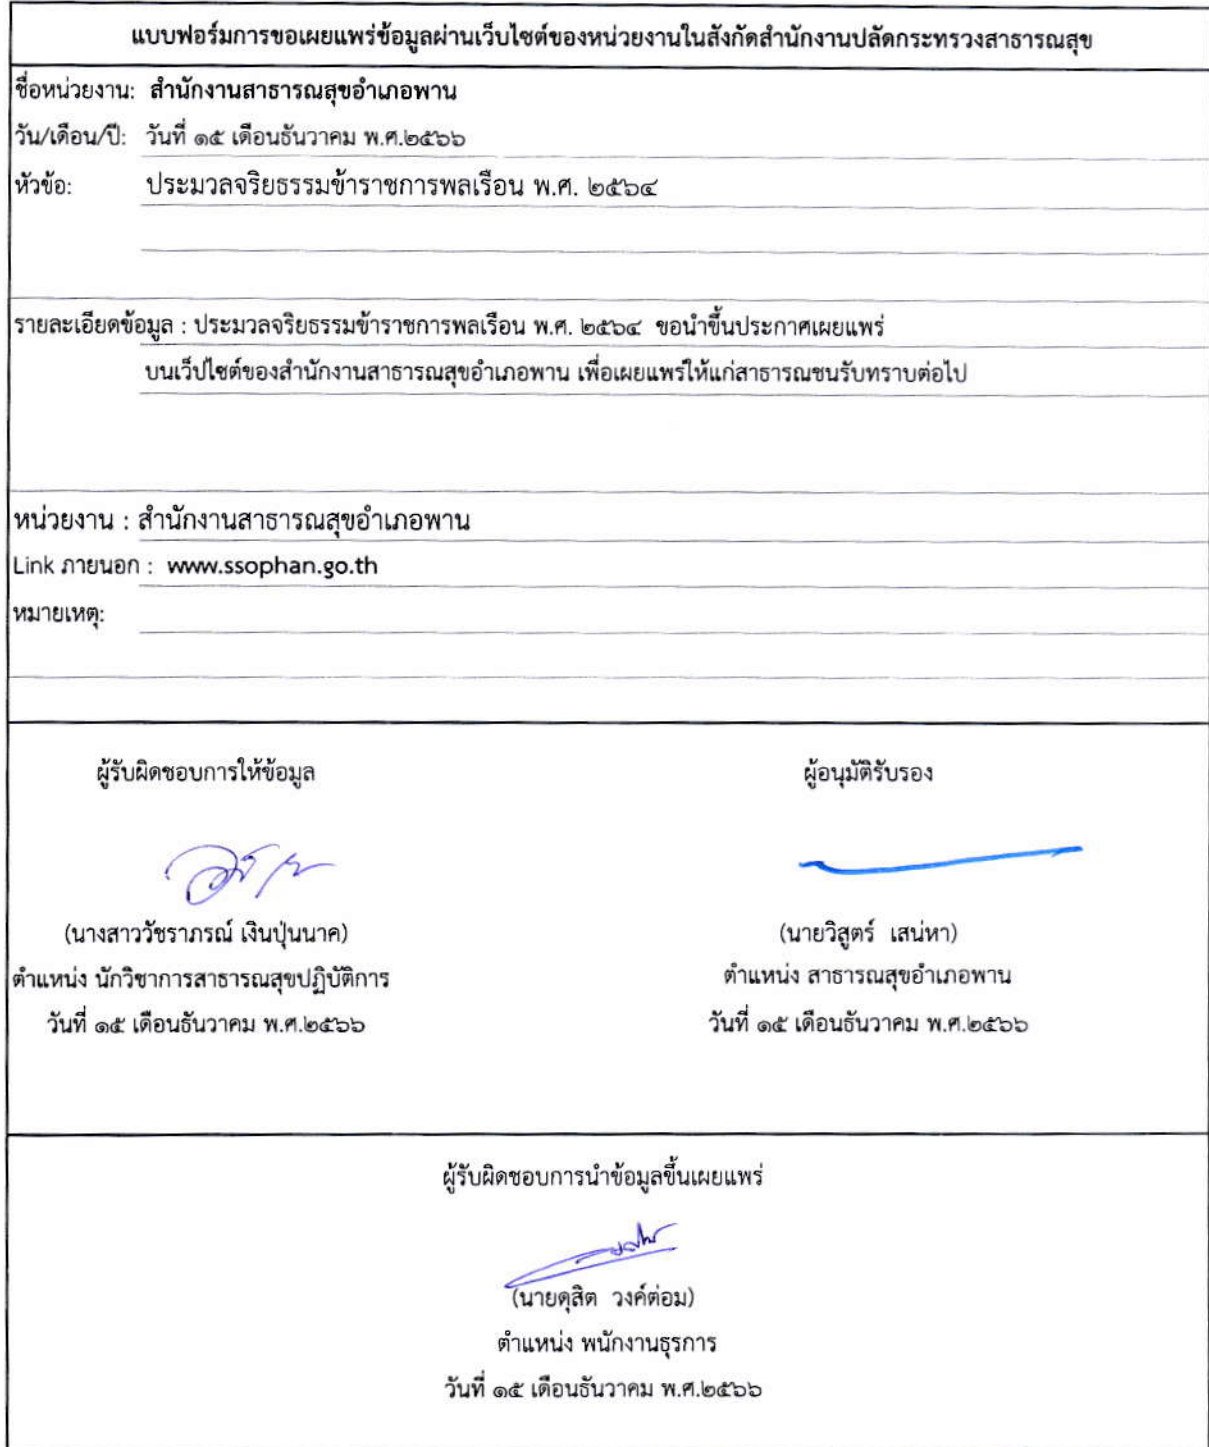 แบบฟอร์มการขอเผยแพร่ข้อมูลผ่านเว็บไซต์ของหน่วยงานในสังกัดสำนักงานปลัดกระทรวงสาธารณสุข
ชื่อหน่วยงาน: สำนักงานสาธารณสุขอำเภอพาน
วัน/เดือน/ปี: วันที่ ๑๕ เดือนธันวาคม พ.ศ.๒๕๖๖
หัวข้อ: ประมวลจริยธรรมข้าราชการพลเรือน พ.ศ. ๒๕๖๔
รายละเอียดข้อมูล : ประมวลจริยธรรมข้าราชการพลเรือน พ.ศ. ๒๕๖๔ ขอนำขึ้นประกาศเผยแพร่
บนเว็ปไซต์ของสำนักงานสาธารณสุขอำเภอพาน เพื่อเผยแพร่ให้แก่สาธารณชนรับทราบต่อไป
หน่วยงาน : สำนักงานสาธารณสุขอำเภอพาน
Link ภายนอก : www.ssophan.go.th
หมายเหตุ:
ผู้รับผิดชอบการให้ข้อมูล
(นางสาววัชราภรณ์ เงินปุ่นนาค)
ตำแหน่ง นักวิชาการสาธารณสุขปฏิบัติการ
วันที่ ๑๕ เดือนธันวาคม พ.ศ.๒๕๖๖
ผู้อนุมัติรับรอง
(นายวิสูตร์ เสน่หา)
ตำแหน่ง สาธารณสุขอำเภอพาน
วันที่ ๑๕ เดือนธันวาคม พ.ศ.๒๕๖๖
ผู้รับผิดชอบการนำข้อมูลขึ้นเผยแพร่
(นายดุสิต วงค์ต่อม)
ตำแหน่ง พนักงานธุรการ
วันที่ ๑๕ เดือนธันวาคม พ.ศ.๒๕๖๖